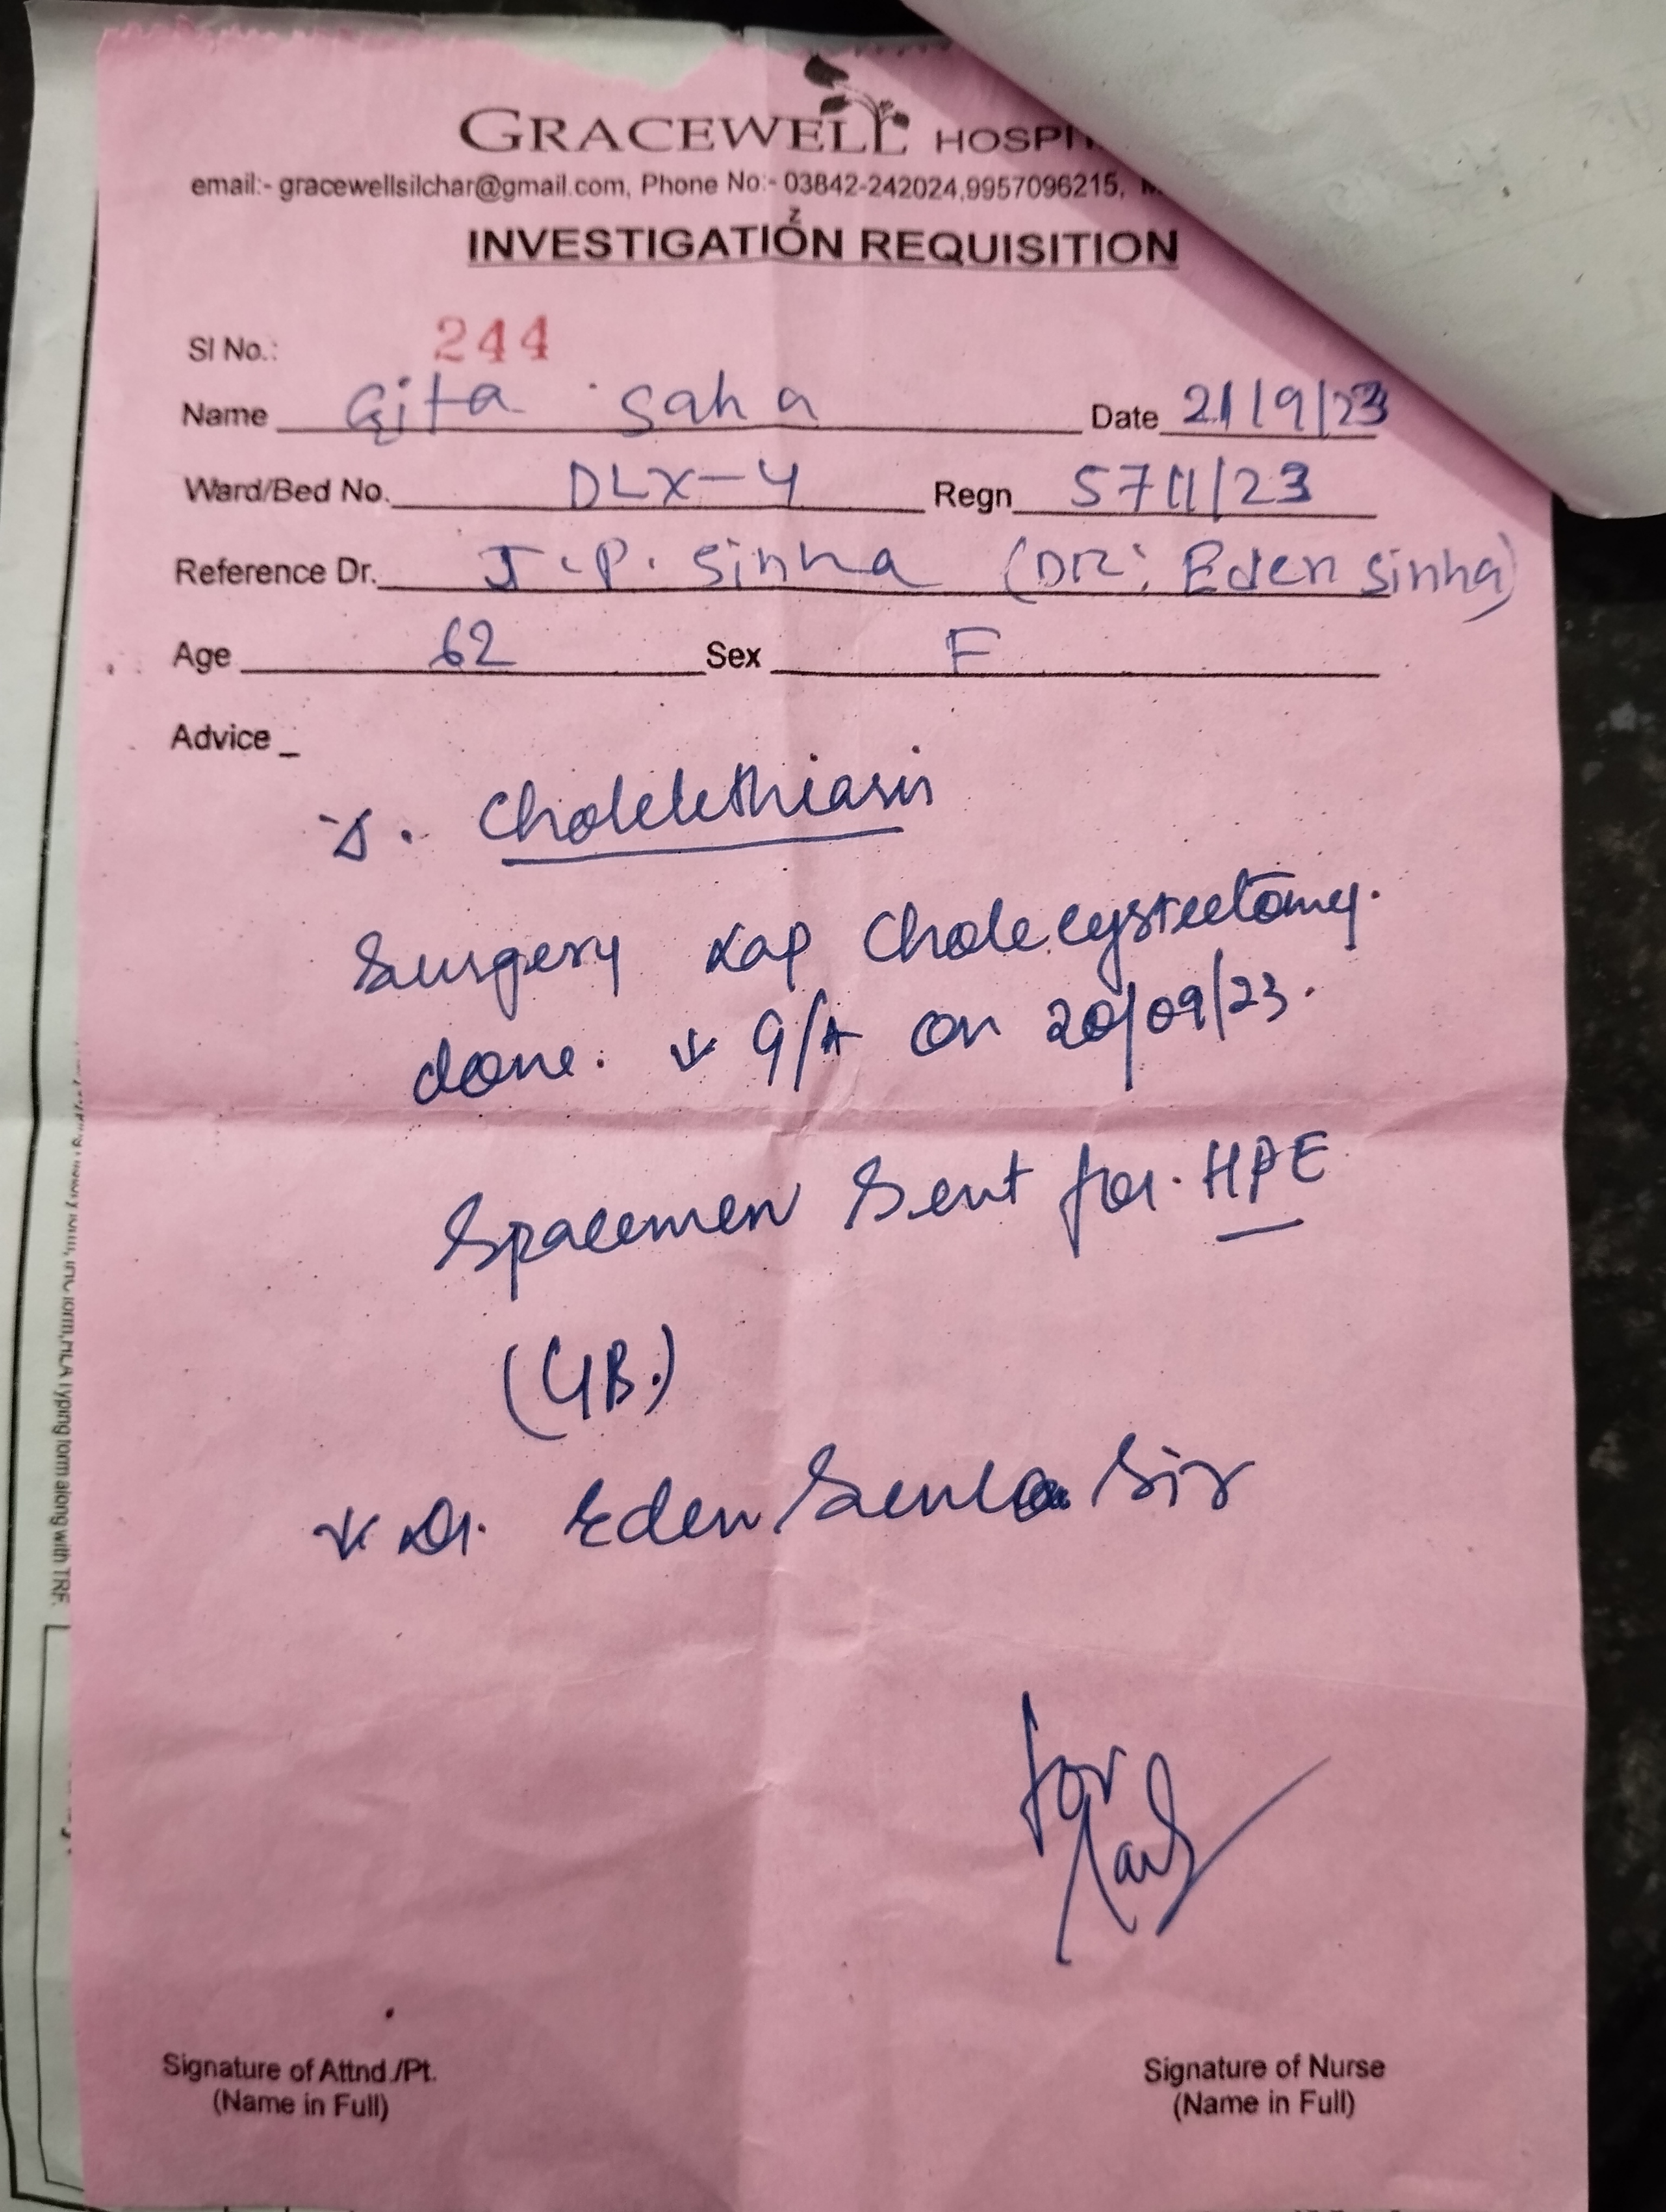 GRACEWELL HOSPI
email:- gracewellsilchar@gmail.com, Phone No:- 03842-242024,9957096215,
INVESTIGATION REQUISITION
Sl No.: 244
Name Gita Saha Date 21/9/23
Ward/Bed No. DLX-4 Regn 5711/23
Reference Dr. J.P. Sinha (DR: Eden Sinha)
Age 62 Sex F
Advice _
Cholelethiasis
Surgery Lap Cholecystectomy.
done. ↓ G/A on 20/09/23.
Spacemen Sent for. HPE
(GB.)
↓ Dr. Eden Senha Sir
for
Signature of Attnd./Pt. Signature of Nurse
(Name in Full) (Name in Full)
typing form along with TRF.